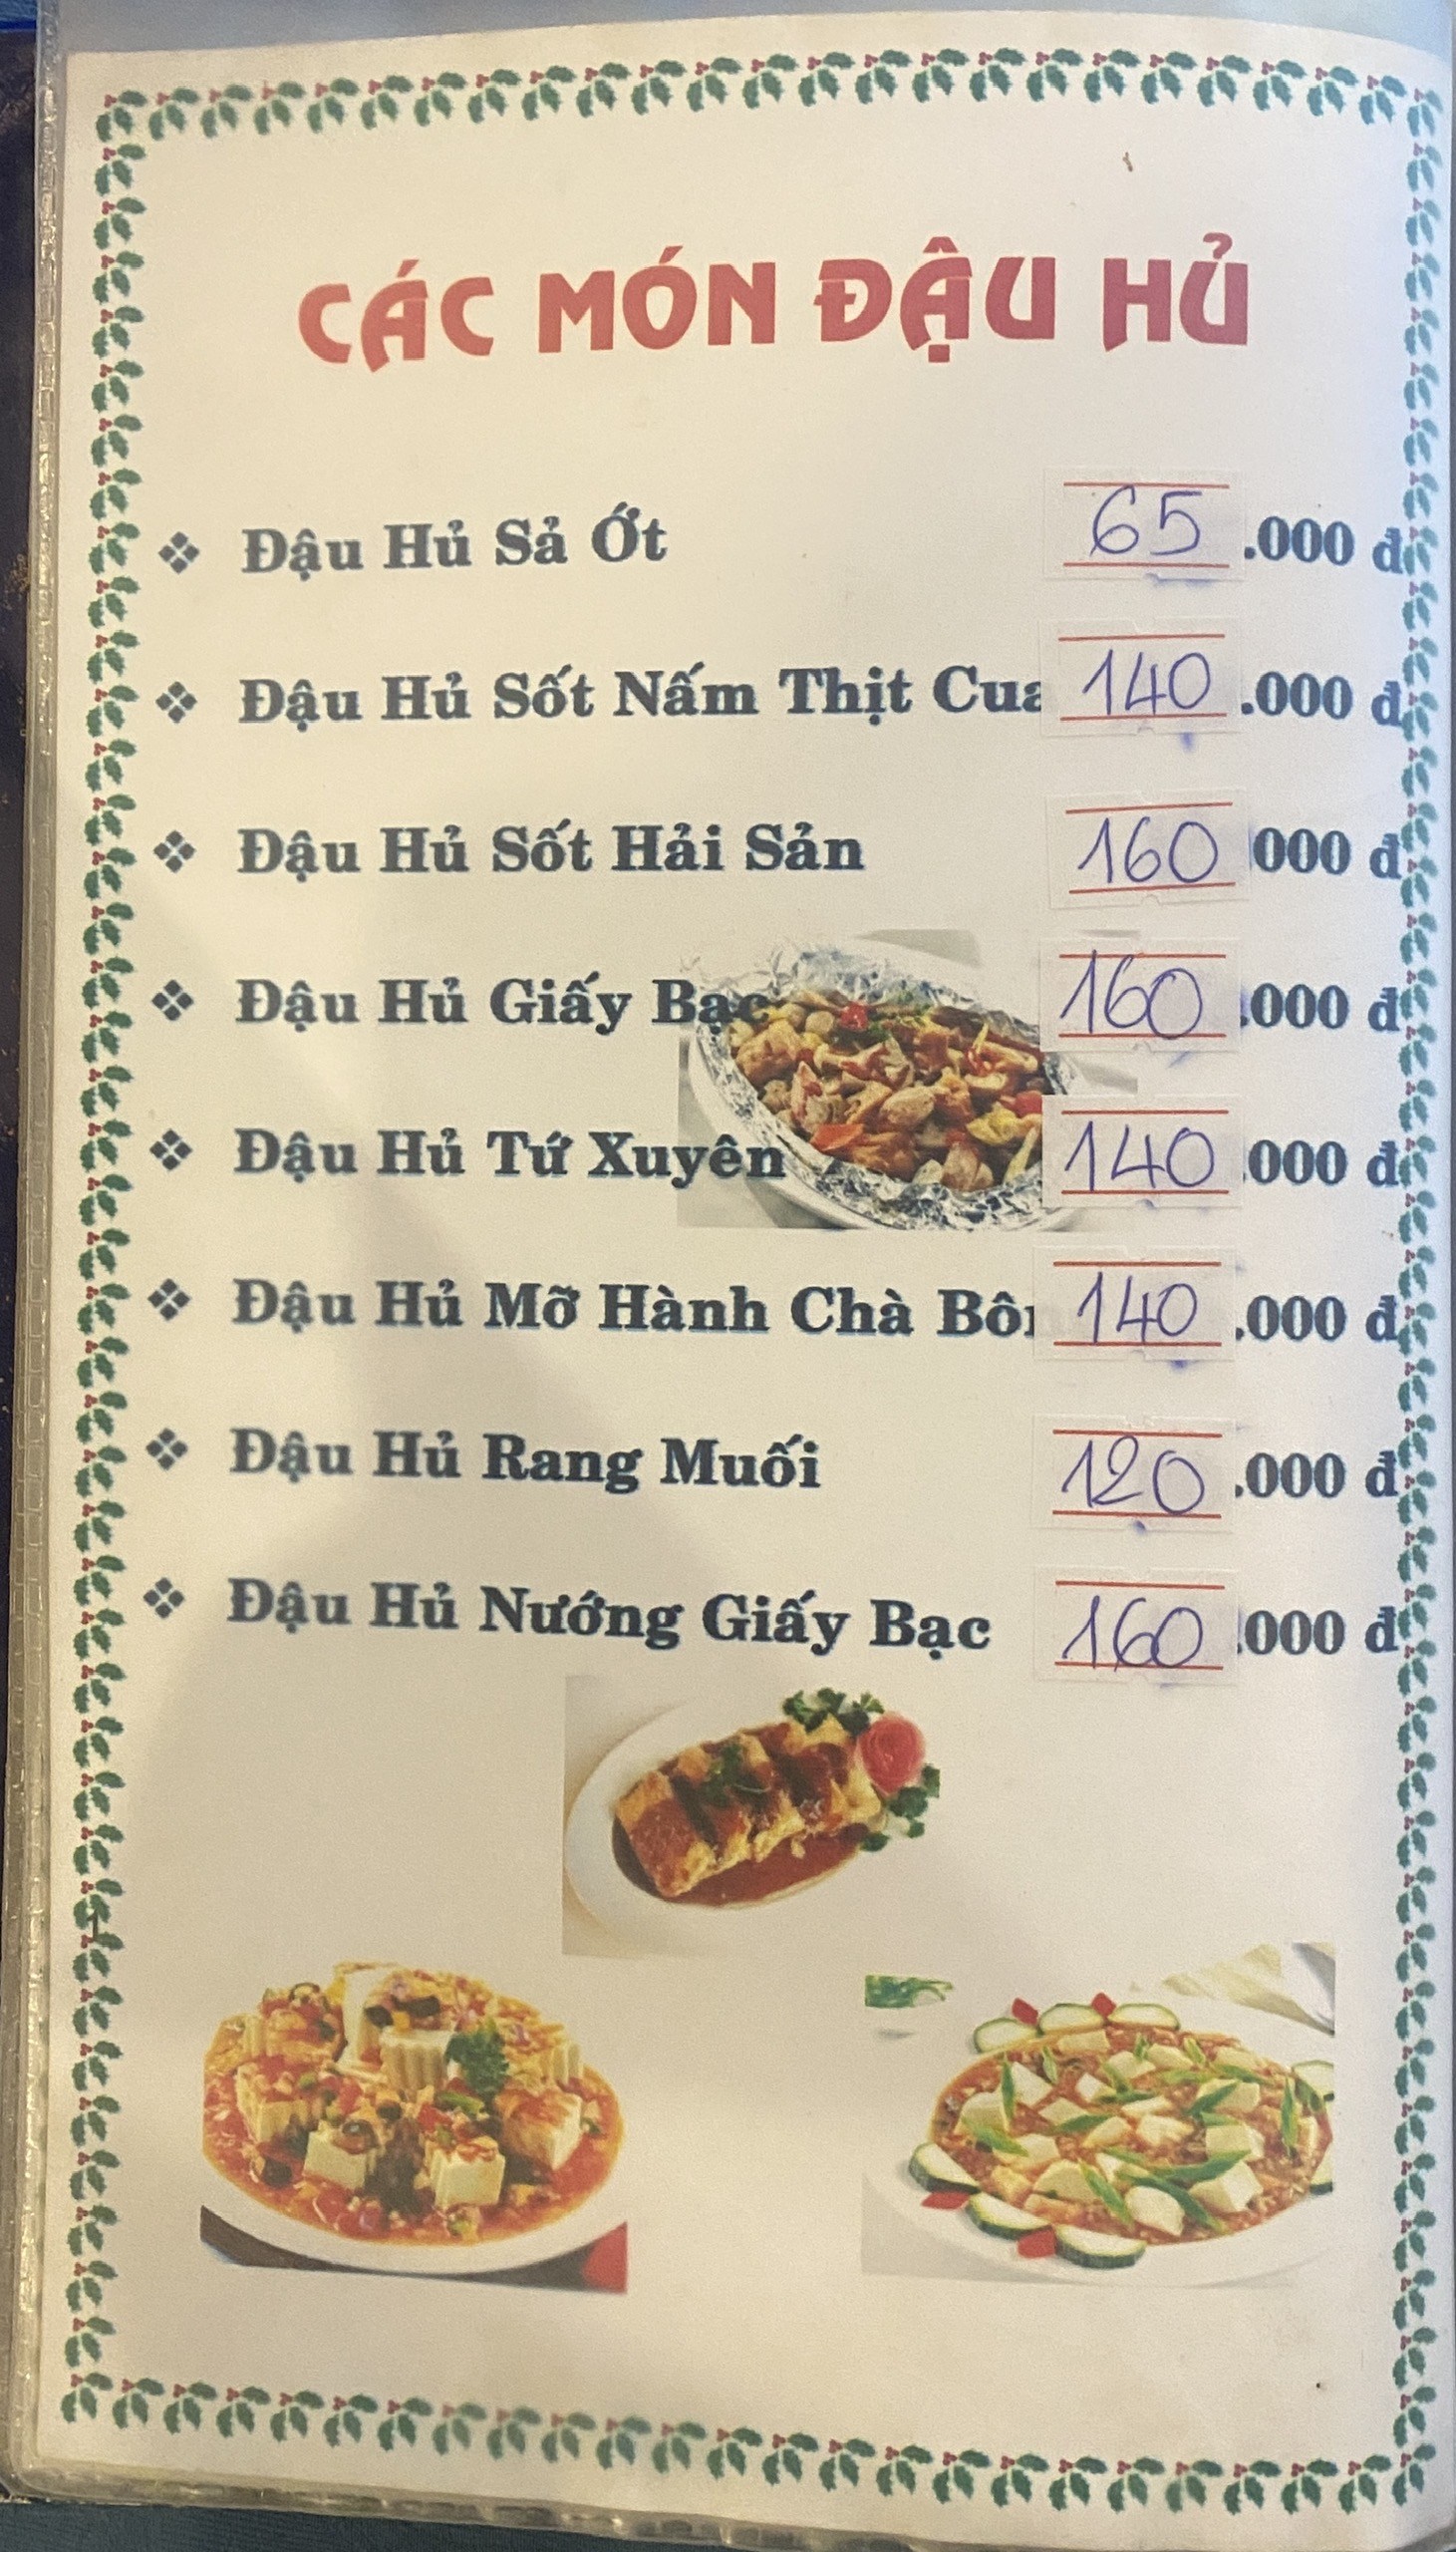 CÁC MÓN ĐẬU HỦ
❖ Đậu Hủ Sả Ớt 65.000 đ
❖ Đậu Hủ Sốt Nấm Thịt Cua 140.000 đ
❖ Đậu Hủ Sốt Hải Sản 160 000 đ
❖ Đậu Hủ Giấy Bạc 160.000 đ
❖ Đậu Hủ Tứ Xuyên 140.000 đ
❖ Đậu Hủ Mỡ Hành Chà Bôn 140.000 đ
❖ Đậu Hủ Rang Muối 120.000 đ
❖ Đậu Hủ Nướng Giấy Bạc 160.000 đ